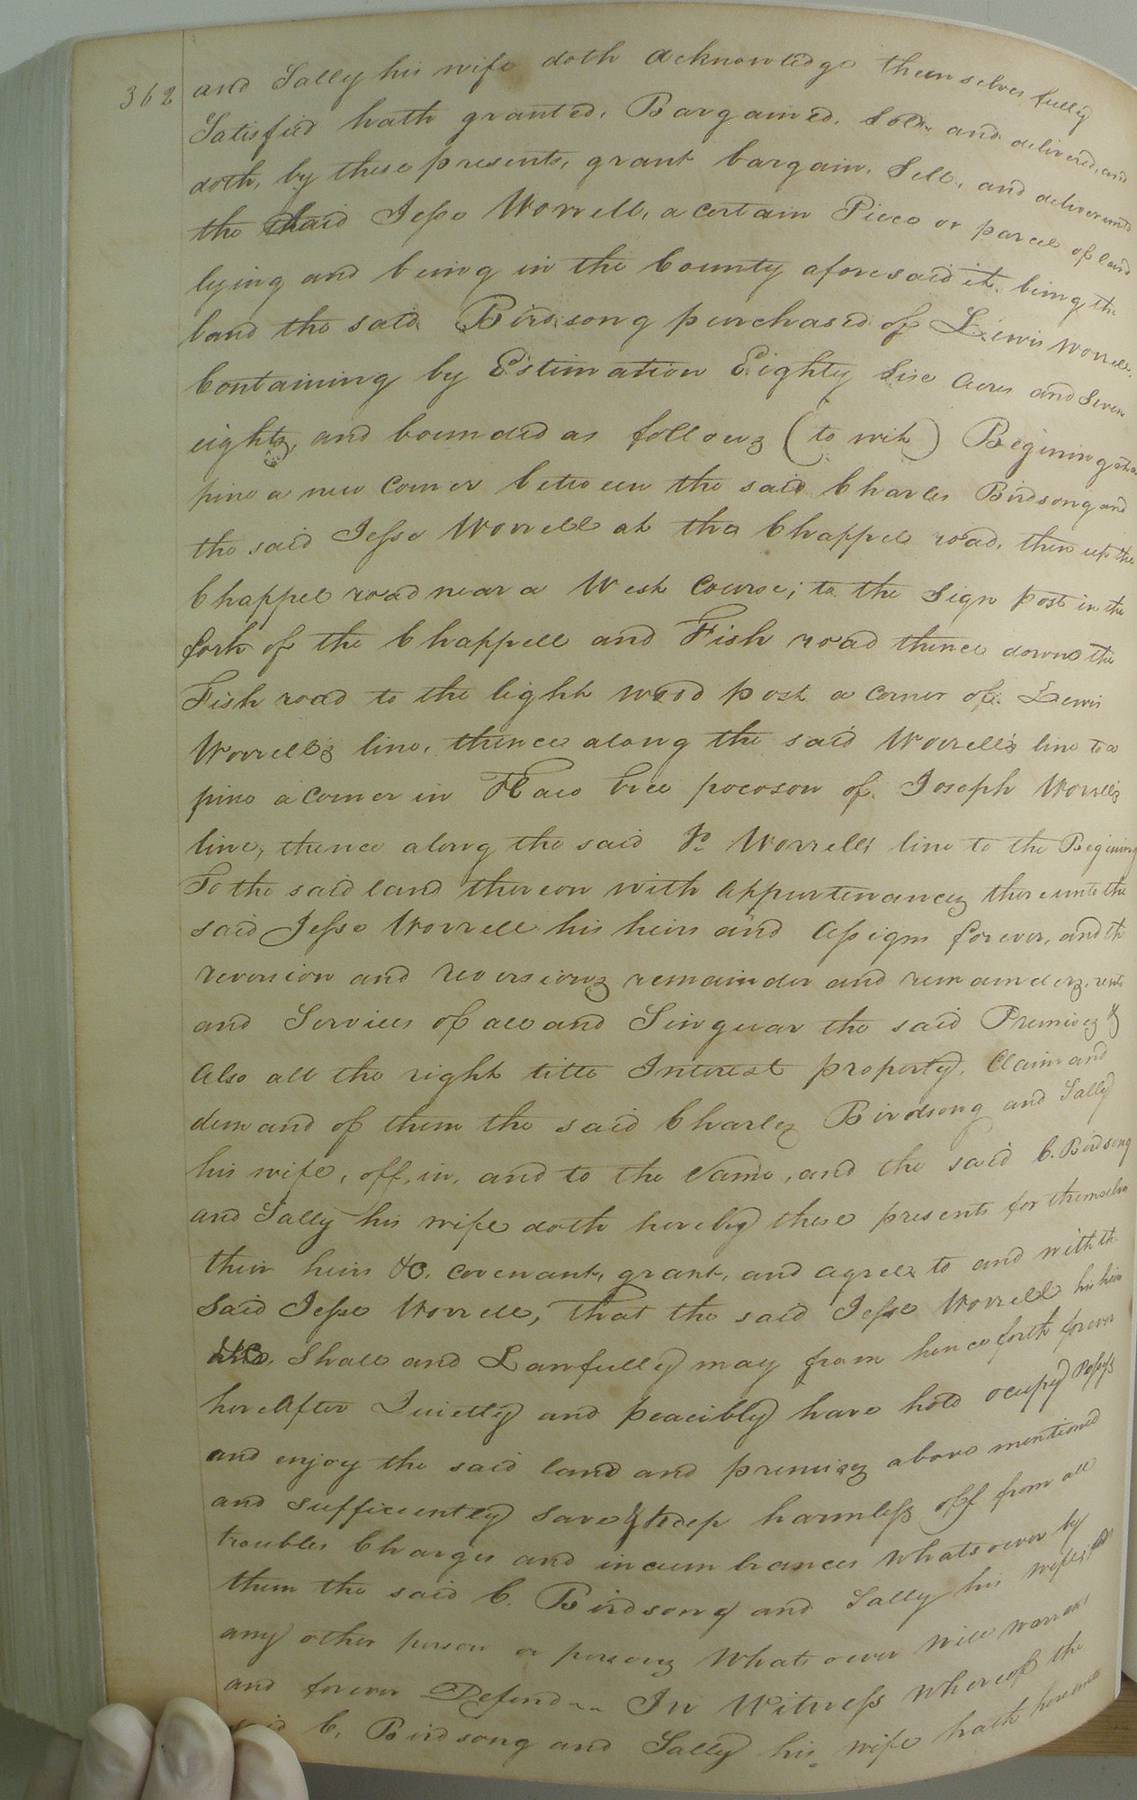 362
and Sally his wife doth acknowledge themselves fully
Satisfied hath granted, Bargained, Sold, and delivered, and
doth, by these presents, grant bargain, Sell, and deliver unto
the Said Jesse Worrell, a certain Piece or parcel of land
lying and being in the County aforesaid it being the
land the said Birdsong purchased of Lewis Worrell,
Containing by Estimation Eighty Six Acres and Seven
eights, and bounded as follows (to wit) Begining at a
pine a new corner between the said Charles Birdsong and
the said Jesse Worrell at the Chappel road, then up the
Chappel road near a West Course; to the Sign post in the
fork of the Chappell and Fish road thence down the
Fish road to the light wood post a corner of Lewis
Worrell's line, thence along the said Worrell's line to a
pine a corner in Haw tree pocoson of Joseph Worrells
line, thence along the said Worrells line to the Begining
To the said land thereon with appurtenances thereunto the
said Jesse Worrell his heirs and assigns forever, and the
reversion and reversions remainder and remainders, rents
and Services of all and Singuar the said Premises &
Also all the right title Interest property, Claim and
demand of them the said Charles Birdsong and Sally
his wife, off, in, and to the same, and the said C. Birdsong
and Sally his wife doth hereby these presents for themselves
their heirs &C. covenant, grant, and agree to and with the
Said Jesse Worrell, that the said Jesse Worrell his heirs
&C, Shall and Lawfully may from hence forth forever
hereAfter Quietly and peacibly have hold ocupy Possess
and enjoy the said land and premises above mentioned
and sufficiently Save & keep harmless off from all
troubles Charges and incumbrances whatsoever by
them the said C. Birdsong and Sally his wife,
any other person or persons whatsoever will warrant
and forever Defend In Witness whereof the
said C. Birdsong and Sally his wife hath hereunto